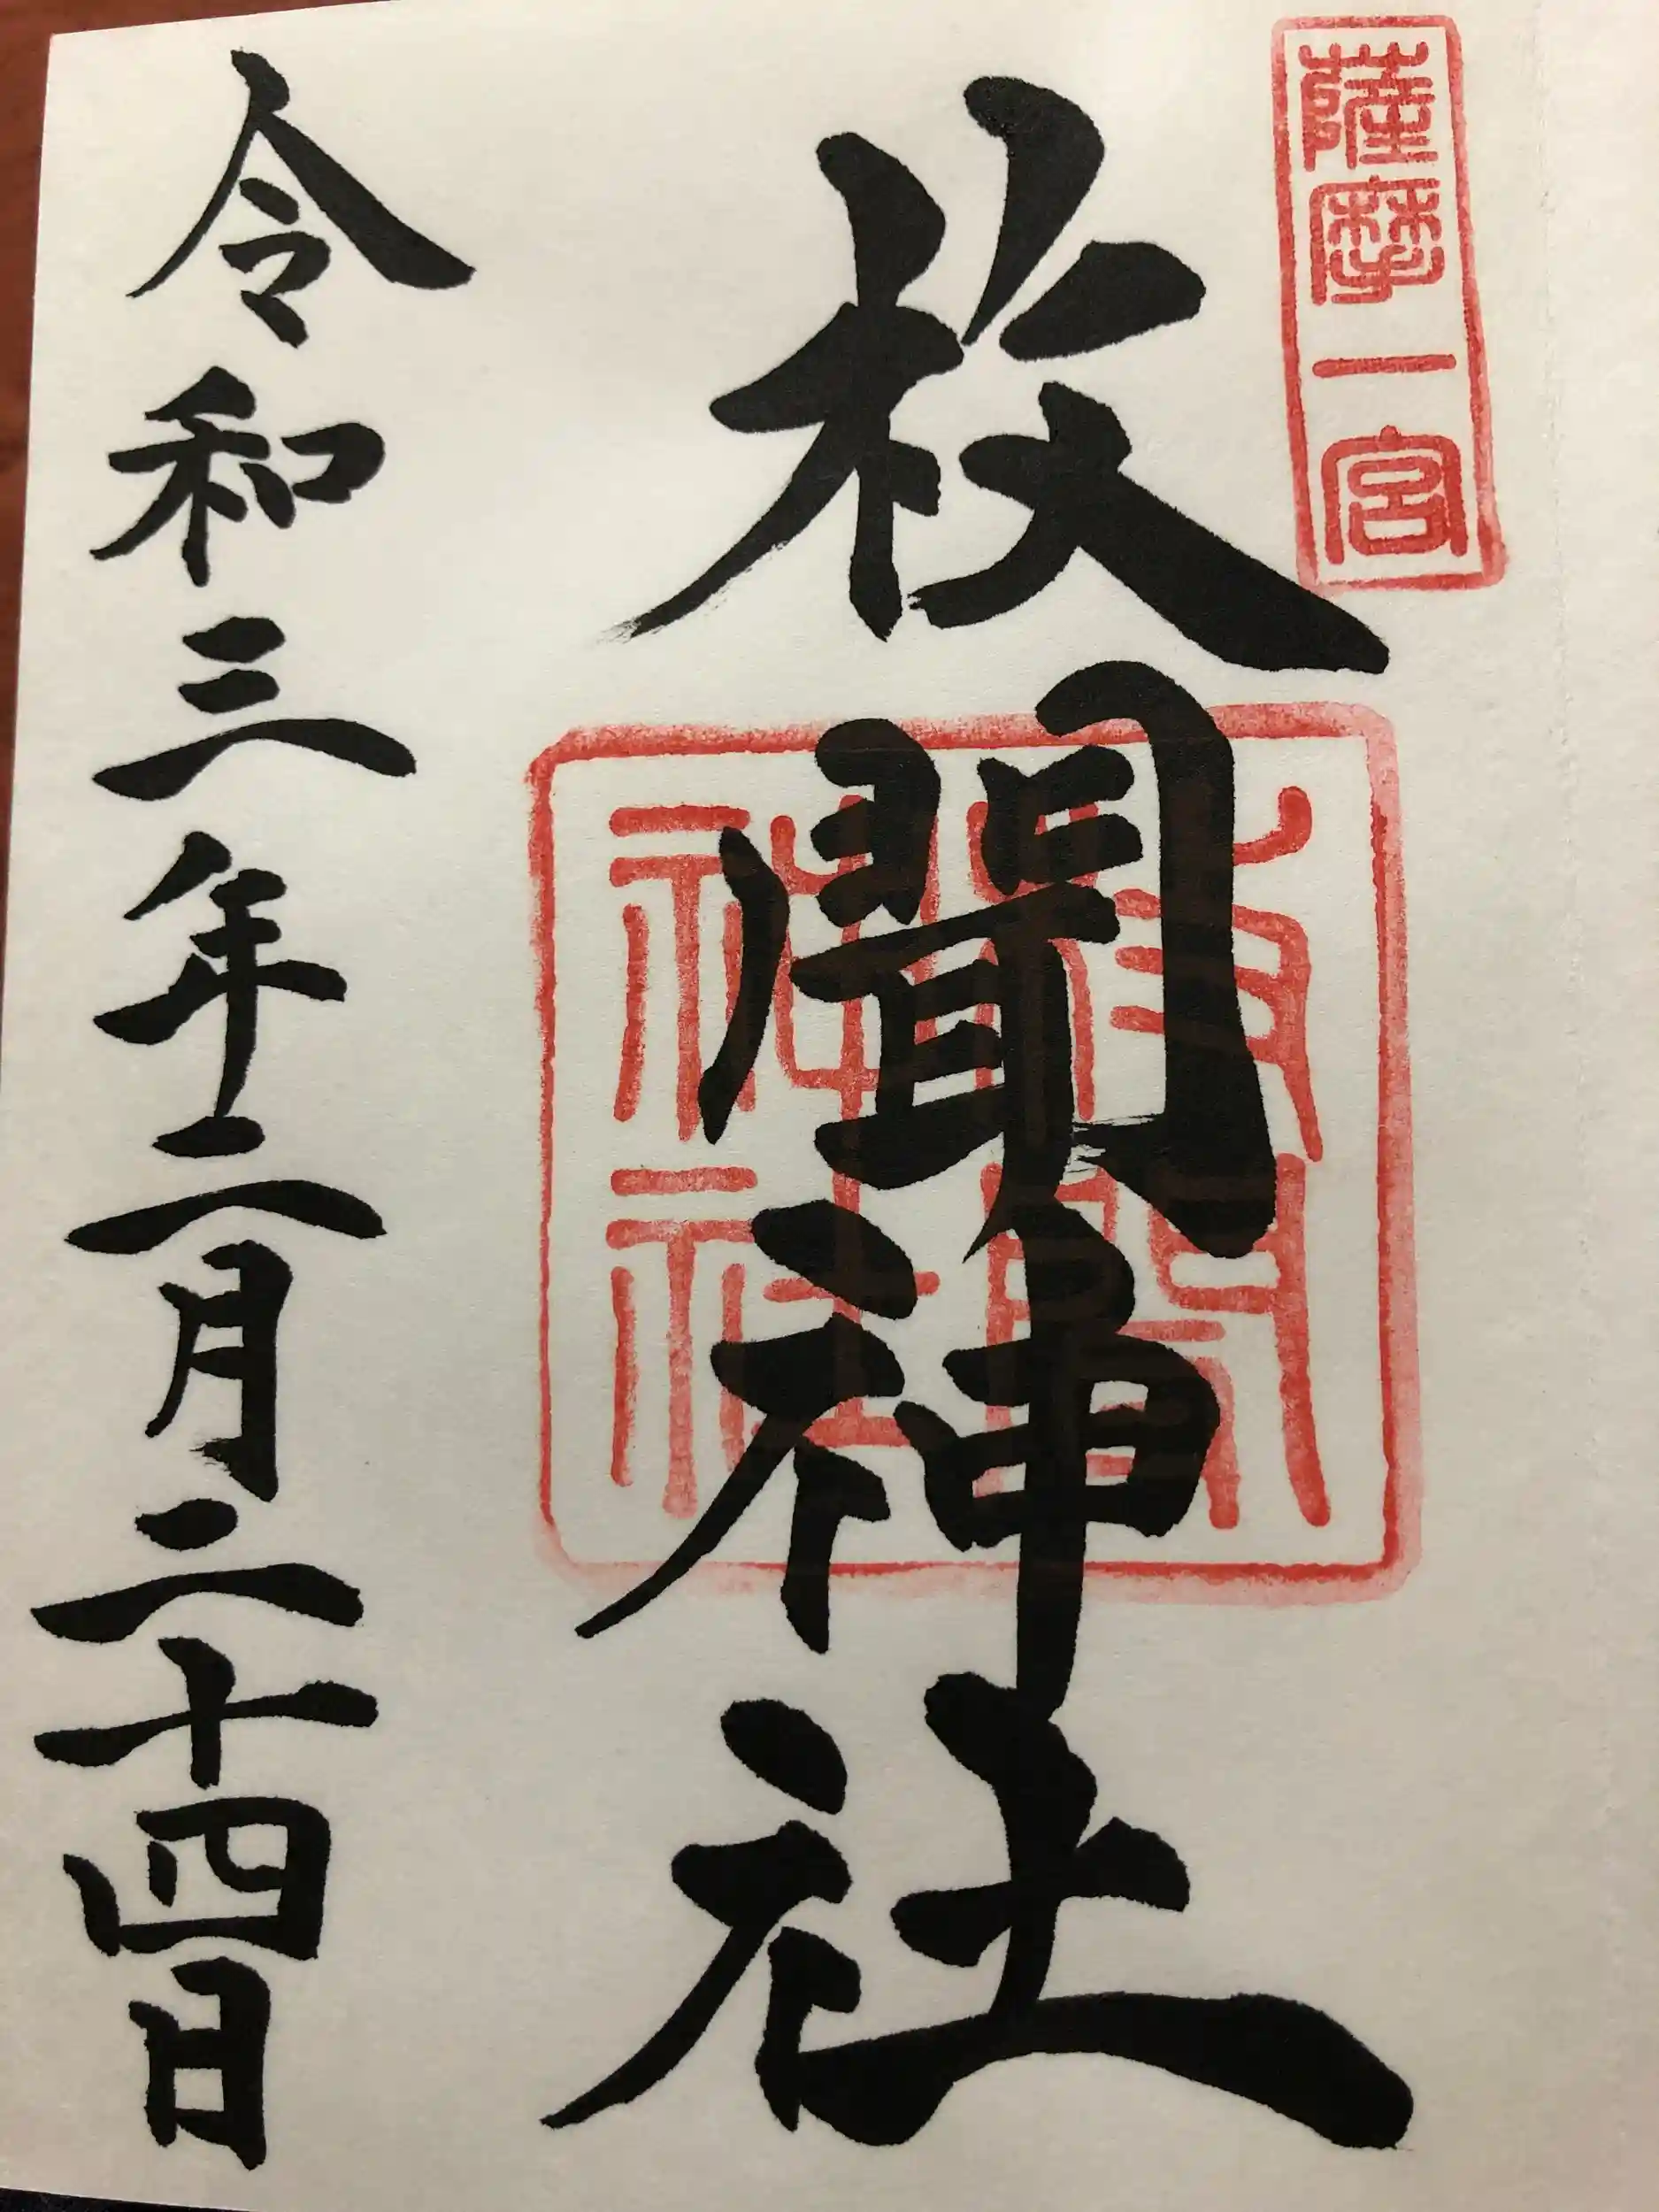 薩摩一宮
枚聞神社
枚聞
神社
令和三年二月二十四日